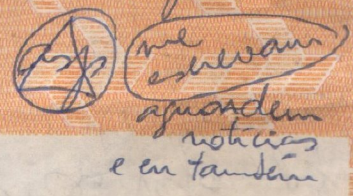 me
escrevam
aguardem
notícias
e eu também